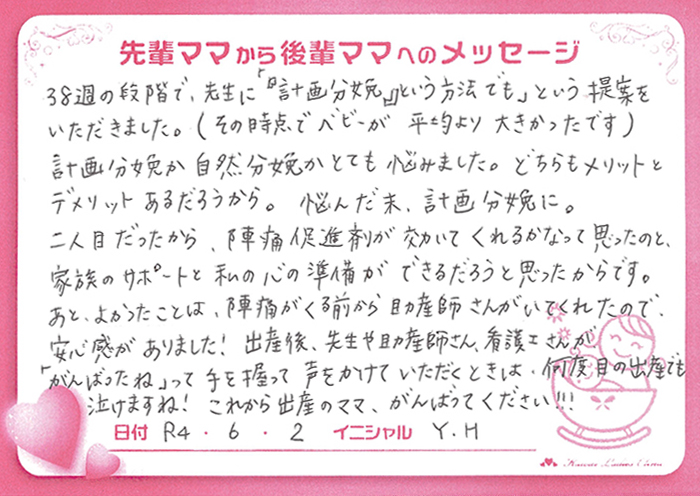 先輩ママから後輩ママへのメッセージ
38週の段階で、先生に「『計画分娩』という方法でも」という提案を
いただきました。(その時点でベビーが 平均より 大きかったです)
計画分娩か自然分娩かとても悩みました。どちらもメリットと
デメリットあるだろうから。 悩んだ末、計画分娩に。
二人目だったから、陣痛促進剤が効いてくれるかなって思ったのと、
家族のサポートと私の心の準備ができるだろうと思ったからです。
あと、よかったことは、陣痛がくる前から助産師さんがいてくれたので、
安心感がありました! 出産後、先生や助産師さん、看護士さんが
「がんばったね」って手を握って声をかけていただくときは、何度目の出産でも
泣けますね! これから出産のママ、がんばってください!!!
日付 R4・6・2 イニシャル Y.H